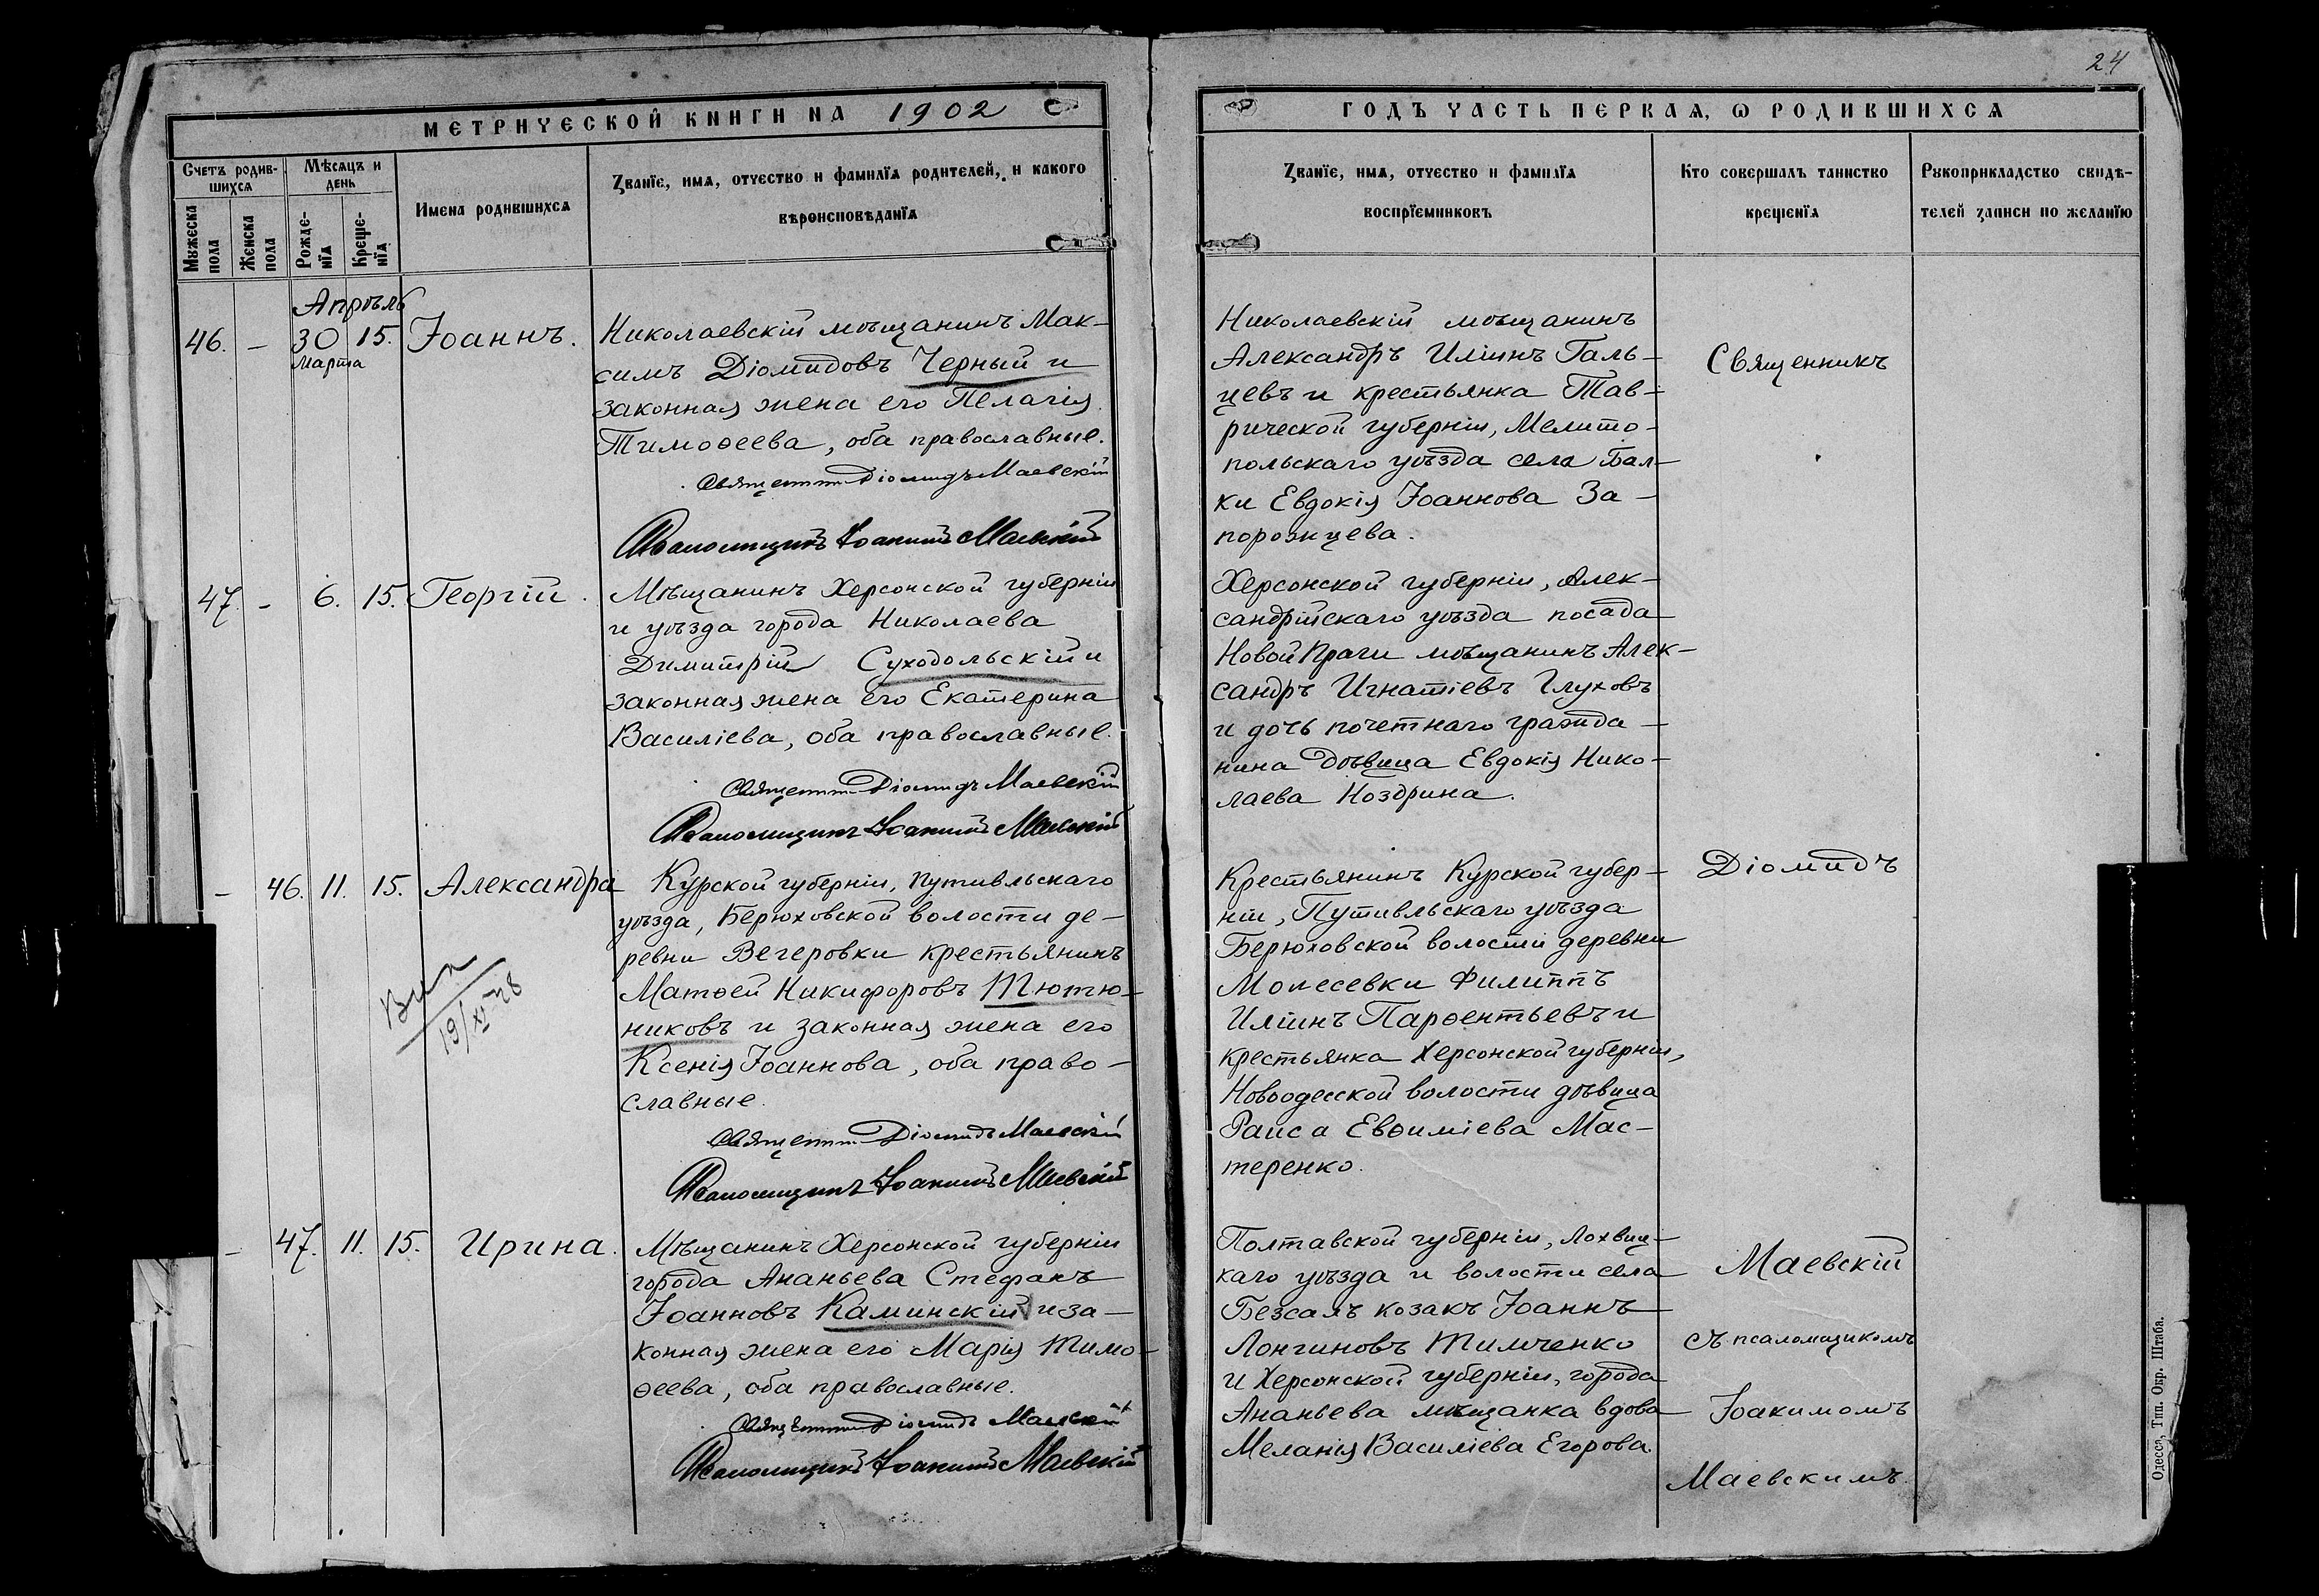 24
МЕТРИЧЕСКОЙ КНИГИ НА 1902
ГОДЪ ЧАСТЬ ПЕРВАЯ, Ѡ РОДИВШИХСЯ
Счетъ родив-
шихся
Мѣсяцъ и
день
Мꙋжеска
пола
Женска
пола
Рожде-
нїя
Креще-
нїя
Имена родившихся
Званїе, имя, отчество и фамилїя родителей, и какого
вѣроисповѣданїя
Званїе, имя, отчество и фамилїя
воспрїемниковъ
Кто совершалъ таинство
крещенїя
Рꙋкоприкладство свидѣ-
телей записи по желанїю
Апрѣль
46. – 30 15. Іоаннъ.
Марта
Николаевскій мѣщанинъ Мак-
симъ Діомидовъ Черный и
законная жена его Пелагія
Тимоѳеева, оба православные.
Священник Діомидъ Маевскій
Псаломщикъ Іоакимъ Маевскій
Николаевскій мѣщанинъ
Александръ Иліинъ Галь-
цевъ и крестьянка Тав-
рической губерніи, Мелито-
польскаго уѣзда села Бал-
ки Евдокія Іоаннова За-
порожцева.
47. – 6. 15. Георгій.
Мѣщанинъ Херсонской губерніи
и уѣзда города Николаева
Димитрій Суходольскій и
законная жена его Екатерина
Василіева, оба православные.
Священник Діомидъ Маевскій
Псаломщикъ Іоакимъ Маевскій
Херсонской губерніи, Алек-
сандрійскаго уѣзда посада
Новой Праги мѣщанинъ Алек-
сандръ Игнатіевъ Глуховъ
и дочь почетнаго гражда-
нина дѣвица Евдокія Нико-
лаева Ноздрина.
– 46. 11. 15. Александра
19/XI-28
Курской губерніи, Путивльскаго
уѣзда, Берюховской волости де-
ревни Вегеровки крестьянинъ
Матѳей Никифоровъ Тютю-
никовъ и законная жена его
Ксенія Іоаннова, оба право-
славные.
Священник Діомидъ Маевскій
Псаломщикъ Іоакимъ Маевскій
Крестьянинъ Курской губер-
ніи, Путивльскаго уѣзда
Берюховской волости деревни
Моисеевки Филиппъ
Иліинъ Парѳентьевъ и
крестьянка Херсонской губерніи,
Новоодесской волости дѣвица
Раиса Евѳиміева Мас-
теренко.
– 47. 11. 15. Ирина.
Мѣщанинъ Херсонской губерніи
города Ананьева Стефанъ
Іоанновъ Каминскій и за-
конная жена его Марія Тимо-
ѳеева, оба православные.
Священник Діомидъ Маевскій
Псаломщикъ Іоакимъ Маевскій
Полтавской губерніи, Лохвиц-
каго уѣзда и волости села
Безсалъ козакъ Іоаннъ
Лонгиновъ Тимченко
и Херсонской губерніи, города
Ананьева мѣщанка вдова
Меланія Василіева Егорова.
Священникъ
Діомидъ
Маевскій
съ псаломщикомъ
Іоакимомъ
Маевскимъ.
Одесса, Тип. Окр. Штаба.